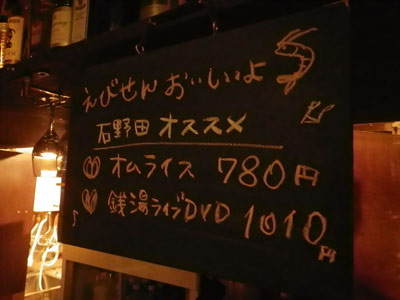 えびせん おいしいよ
石野田 オススメ
オムライス 780円
銭湯ライブDVD 1010円